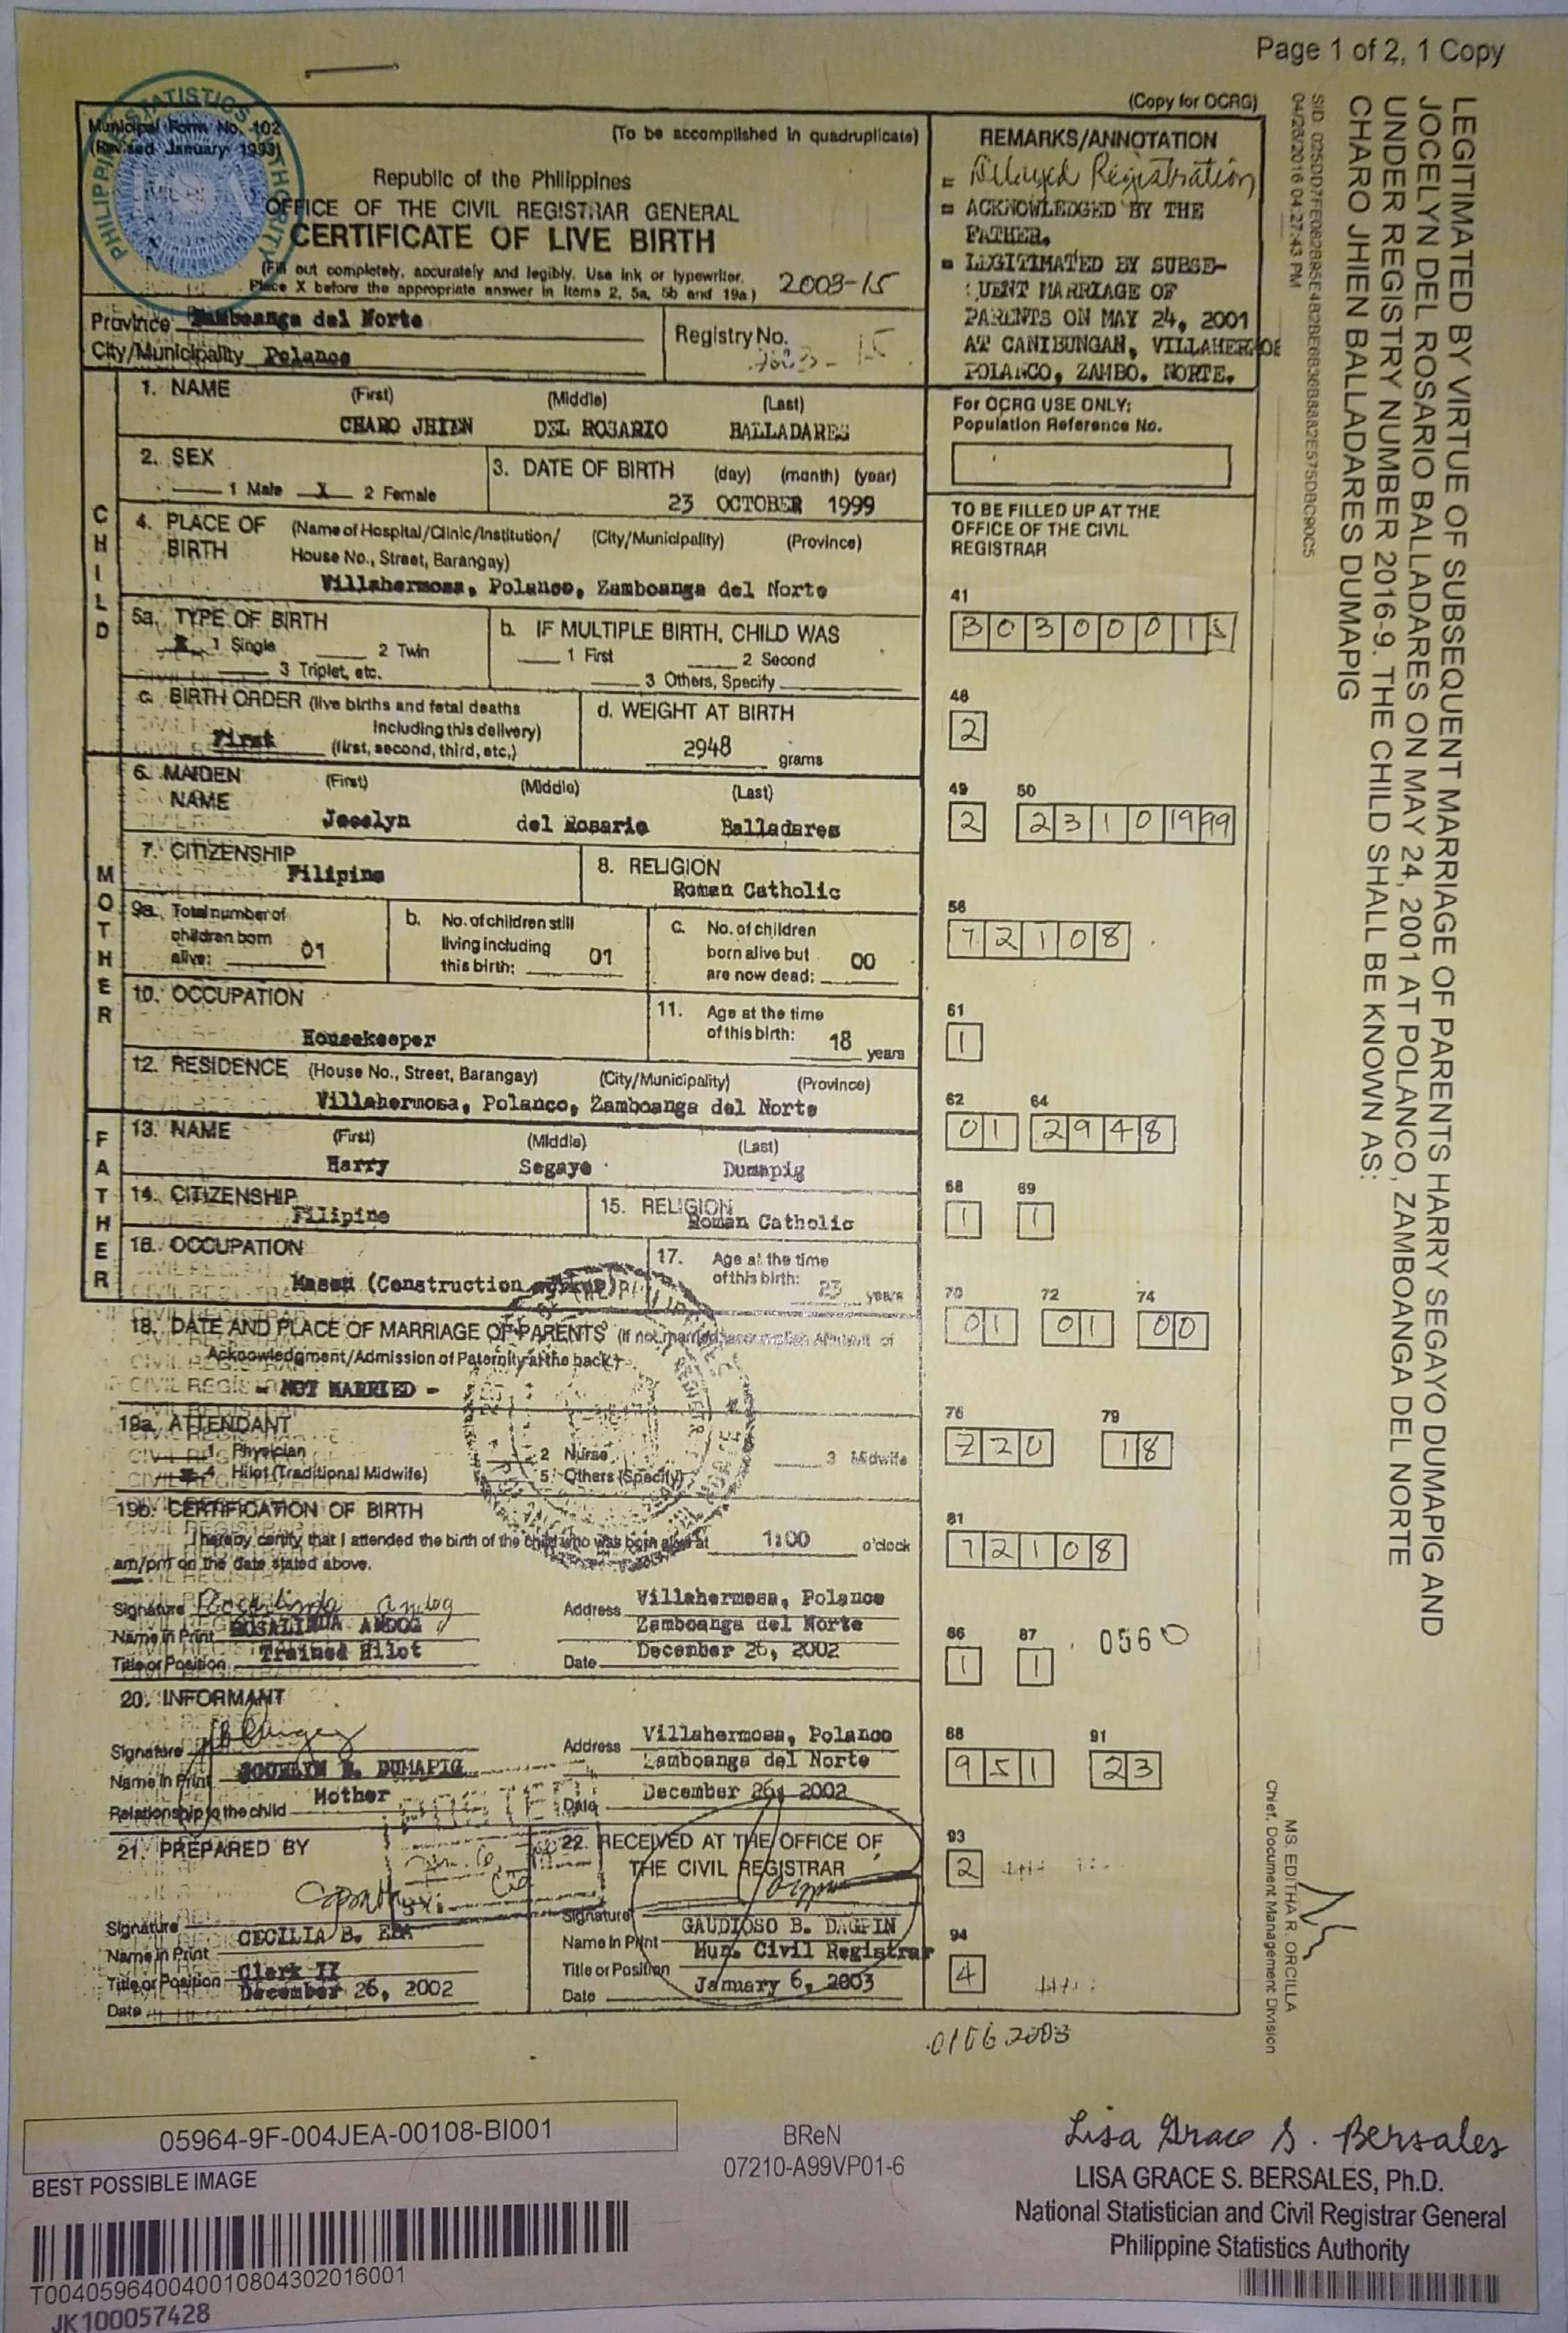 Page 1 of 2, 1 Copy
(Copy for OCRG)
PHILIPPINE STATISTICS AUTHORITY
Municipal Form No. 102
(Revised January 1993)
(To be accomplished in quadruplicate)
Republic of the Philippines
OFFICE OF THE CIVIL REGISTRAR GENERAL
CERTIFICATE OF LIVE BIRTH
(Fill out completely, accurately and legibly. Use ink or typewriter.
Place X before the appropriate answer in Items 2, 5a, 5b and 19a.)
2003-15
Province Zamboanga del Norte
City/Municipality Polanco
Registry No.
2003-15
REMARKS/ANNOTATION
= Delayed Registration
= ACKNOWLEDGED BY THE
FATHER.
= LEGITIMATED BY SUBSE-
QUENT MARRIAGE OF
PARENTS ON MAY 24, 2001
AT CANIBUNGAN, VILLAHERMOSA
POLANCO, ZAMBO. NORTE.
For OCRG USE ONLY:
Population Reference No.
TO BE FILLED UP AT THE
OFFICE OF THE CIVIL
REGISTRAR
CHILD
1. NAME (First) (Middle) (Last)
CHARO JHIEN DEL ROSARIO BALLADARES
2. SEX
1 Male X 2 Female
3. DATE OF BIRTH (day) (month) (year)
23 OCTOBER 1999
4. PLACE OF BIRTH (Name of Hospital/Clinic/Institution/ (City/Municipality) (Province)
House No., Street, Barangay)
Villahermosa, Polanco, Zamboanga del Norte
5a. TYPE OF BIRTH
X 1 Single 2 Twin
3 Triplet, etc.
b. IF MULTIPLE BIRTH, CHILD WAS
1 First 2 Second
3 Others, Specify
c. BIRTH ORDER (live births and fetal deaths
including this delivery)
First (first, second, third, etc.)
d. WEIGHT AT BIRTH
2948 grams
MOTHER
6. MAIDEN NAME (First) (Middle) (Last)
Jocelyn del Rosario Balladares
7. CITIZENSHIP
Filipino
8. RELIGION
Roman Catholic
9a. Total number of children born alive: 01
b. No. of children still living including this birth: 01
c. No. of children born alive but are now dead: 00
10. OCCUPATION
Housekeeper
11. Age at the time of this birth: 18 years
12. RESIDENCE (House No., Street, Barangay) (City/Municipality) (Province)
Villahermosa, Polanco, Zamboanga del Norte
FATHER
13. NAME (First) (Middle) (Last)
Harry Segayo Dumapig
14. CITIZENSHIP
Filipino
15. RELIGION
Roman Catholic
16. OCCUPATION
Mason (Construction
17. Age at the time of this birth: 23 years
18. DATE AND PLACE OF MARRIAGE OF PARENTS (If not married, accomplish Affidavit of
Acknowledgment/Admission of Paternity at the back.)
- NOT MARRIED -
19a. ATTENDANT
1. Physician 2 Nurse 3 Midwife
X 4 Hilot (Traditional Midwife) 5 Others (Specify)
19b. CERTIFICATION OF BIRTH
I hereby certify that I attended the birth of the child who was born alive at 1:00 o'clock
am/pm on the date stated above.
Signature Rosalinda Andog
Name in Print ROSALINDA ANDOG
Title or Position Trained Hilot
Address Villahermosa, Polanco
Zamboanga del Norte
Date December 26, 2002
20. INFORMANT
Signature
Name in Print JOCELYN B. DUMAPIG
Relationship to the child Mother
Address Villahermosa, Polanco
Zamboanga del Norte
Date December 26, 2002
21. PREPARED BY
Signature
Name in Print CECILIA B. EBA
Title or Position Clerk II
Date December 26, 2002
22. RECEIVED AT THE OFFICE OF
THE CIVIL REGISTRAR
Signature
Name in Print GAUDIOSO B. DAGPIN
Title or Position Mun. Civil Registrar
Date January 6, 2003
41
30300015
48
2
49 50
2 23101999
56
72108
61
1
62 64
01 2948
68 69
1 1
70 72 74
01 01 00
76 79
220 18
81
72108
86 87
1 1 0560
88 91
951 23
93
2
94
4
01062003
LEGITIMATED BY VIRTUE OF SUBSEQUENT MARRIAGE OF PARENTS HARRY SEGAYO DUMAPIG AND
JOCELYN DEL ROSARIO BALLADARES ON MAY 24, 2001 AT POLANCO, ZAMBOANGA DEL NORTE
UNDER REGISTRY NUMBER 2016-9. THE CHILD SHALL BE KNOWN AS:
CHARO JHIEN BALLADARES DUMAPIG
04/26/2016 04:27:43 PM
MS. EDITHA R. ORCILLA
Chief, Document Management Division
05964-9F-004JEA-00108-BI001
BEST POSSIBLE IMAGE
T004059640040010804302016001
JK100057428
BReN
07210-A99VP01-6
Lisa Grace S. Bersales
LISA GRACE S. BERSALES, Ph.D.
National Statistician and Civil Registrar General
Philippine Statistics Authority